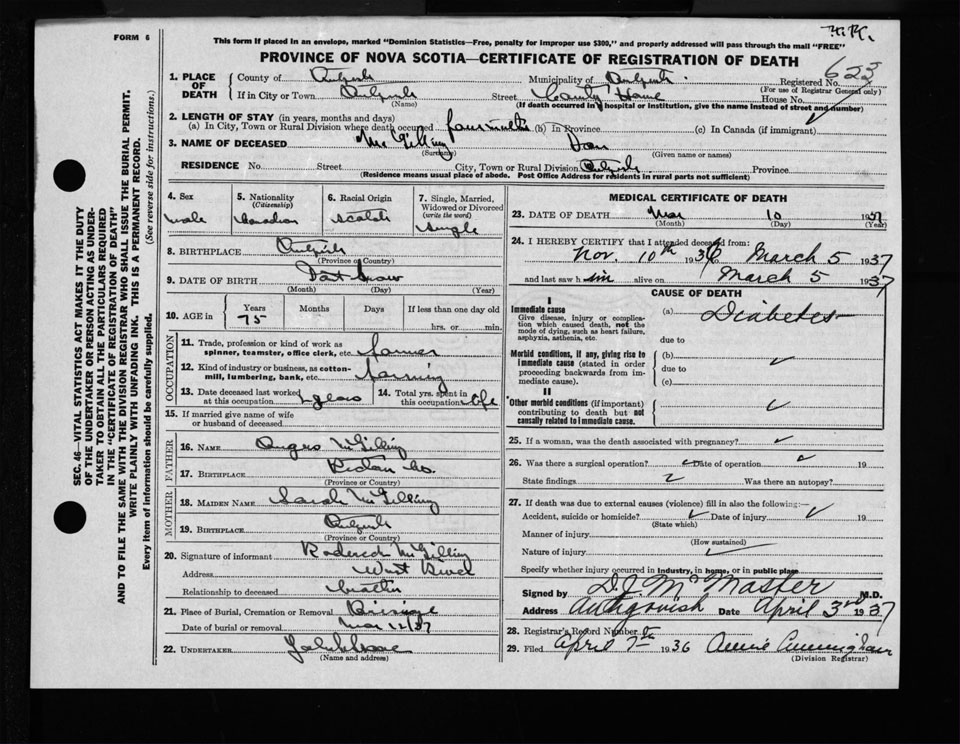 FORM 6
This form if placed in an envelope, marked "Dominion Statistics—Free, penalty for improper use $300," and properly addressed will pass through the mail "FREE"
PROVINCE OF NOVA SCOTIA—CERTIFICATE OF REGISTRATION OF DEATH
623
1. PLACE OF DEATH
County of
Municipality of
Registered No.
(For use of Registrar General only)
If in City or Town
(Name)
Street County Home House No.
(If death occurred in hospital or institution, give the name instead of street and number)
2. LENGTH OF STAY (in years, months and days)
(a) In City, Town or Rural Division where death occurred four months (b) In Province (c) In Canada (if immigrant)
3. NAME OF DECEASED Dan
(Surname) (Given name or names)
RESIDENCE No. Street City, Town or Rural Division Province
(Residence means usual place of abode. Post Office Address for residents in rural parts not sufficient)
4. Sex
male
5. Nationality
(Citizenship)
Canadian
6. Racial Origin
Scotch
7. Single, Married, Widowed or Divorced
(write the word)
Single
8. BIRTHPLACE
(Province or Country)
9. DATE OF BIRTH Dont know
(Month) (Day) (Year)
10. AGE in
Years
75
Months
Days
If less than one day old
hrs. or min.
OCCUPATION
11. Trade, profession or kind of work as spinner, teamster, office clerk, etc. farmer
12. Kind of industry or business, as cotton-mill, lumbering, bank, etc. farming
13. Date deceased last worked at this occupation years
14. Total yrs. spent in this occupation life
15. If married give name of wife or husband of deceased
FATHER
16. NAME Angus
17. BIRTHPLACE Pictou Co
(Province or Country)
MOTHER
18. MAIDEN NAME Sarah
19. BIRTHPLACE
(Province or Country)
20. Signature of informant
Address West River
Relationship to deceased brother
21. Place of Burial, Cremation or Removal
Date of burial or removal Mar 12/37
22. UNDERTAKER
(Name and address)
MEDICAL CERTIFICATE OF DEATH
23. DATE OF DEATH Mar 10 1937
(Month) (Day) (Year)
24. I HEREBY CERTIFY that I attended deceased from:
Nov. 10th 1936 March 5 1937
and last saw him alive on March 5 1937
CAUSE OF DEATH
I
Immediate cause
Give disease, injury or complication which caused death, not the mode of dying, such as heart failure, asphyxia, asthenia, etc.
(a) Diabetes
due to
Morbid conditions, if any, giving rise to immediate cause (stated in order proceeding backwards from immediate cause).
(b)
due to
(c)
II
Other morbid conditions (if important) contributing to death but not causally related to immediate cause.
25. If a woman, was the death associated with pregnancy?
26. Was there a surgical operation? Date of operation 19
State findings Was there an autopsy?
27. If death was due to external causes (violence) fill in also the following:—
Accident, suicide or homicide? Date of injury 19
(State which)
Manner of injury
(How sustained)
Nature of injury
Specify whether injury occurred in industry, in home, or in public place
Signed by D.J. McMaster M.D.
Address Antigonish Date April 3rd 1937
28. Registrar's Record Number
29. Filed April 7th 1936 Annie Cunningham
(Division Registrar)
SEC. 46—VITAL STATISTICS ACT MAKES IT THE DUTY
OF THE UNDERTAKER OR PERSON ACTING AS UNDER-
TAKER TO OBTAIN ALL THE PARTICULARS REQUIRED
IN THE "CERTIFICATE OF REGISTRATION OF DEATH"
AND TO FILE THE SAME WITH THE DIVISION REGISTRAR WHO SHALL ISSUE THE BURIAL PERMIT.
WRITE PLAINLY WITH UNFADING INK. THIS IS A PERMANENT RECORD.
Every item of information should be carefully supplied. (See reverse side for instructions.)